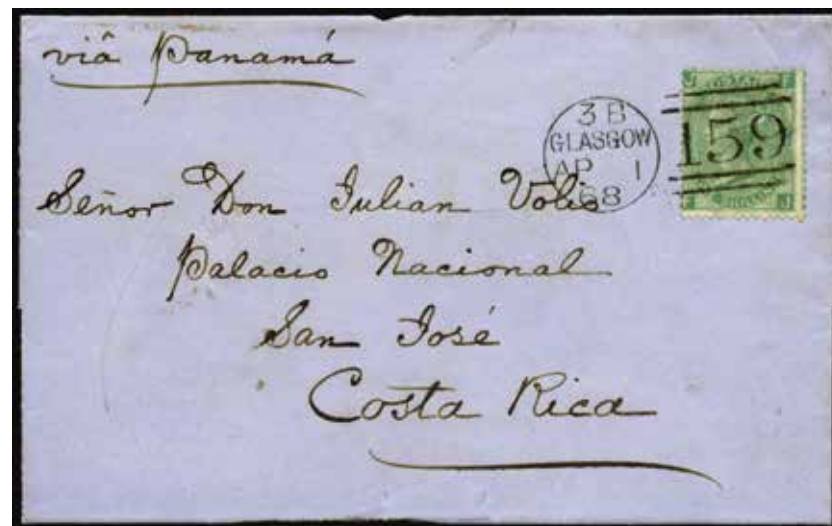 viâ Panamá
3 B
GLASGOW
AP 1
68
159
Señor Don Julian Volio
Palacio Nacional
San José
Costa Rica